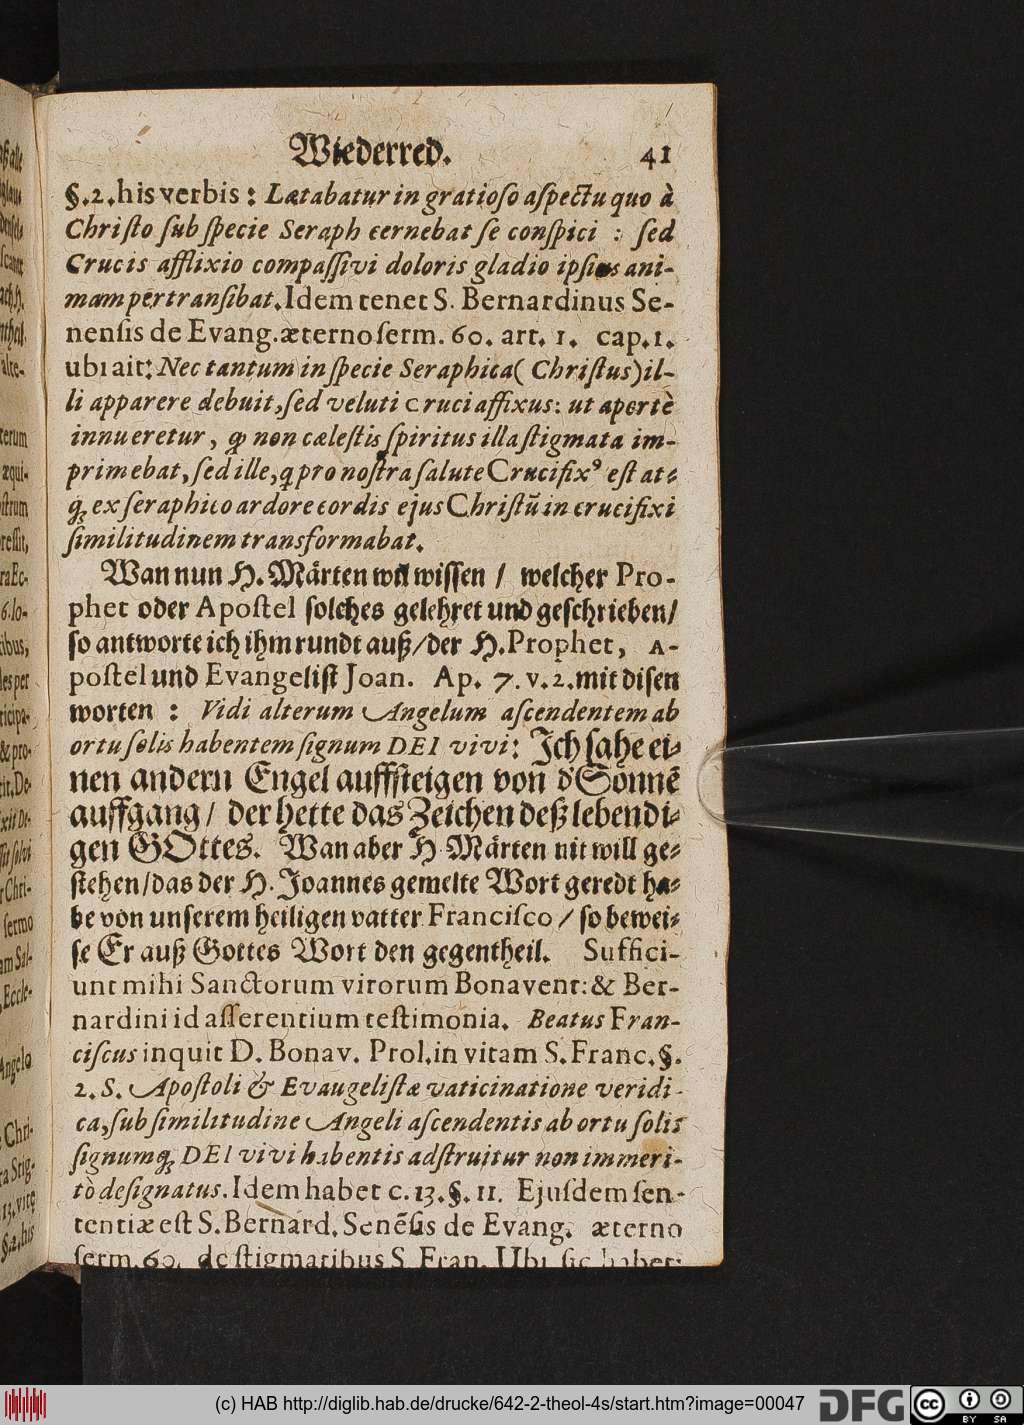 Wiederred. 41
§. 2. his verbis: Lætabatur in gratioſo aſpectu quo à
Chriſto ſub ſpecie Seraph cernebat ſe conſpici : ſed
Crucis afflixio compaſſivi doloris gladio ipſius ani-
mam pertranſibat. Idem tenet S. Bernardinus Se-
nenſis de Evang. æterno ſerm. 60. art. 1. cap. 1.
ubi ait: Nec tantum in ſpecie Seraphica (Chriſtus) il-
li apparere debuit, ſed veluti cruci affixus: ut apertè
innueretur, ꝙ non cæleſtis ſpiritus illa ſtigmata im-
primebat, ſed ille, q pro noſtra ſalute Crucifixꝰ eſt at-
qꝫ ex ſeraphico ardore cordis ejus Chriſtũ in crucifixi
ſimilitudinem transformabat.
Wan nun H. Märten wil wiſſen / welcher Pro-
phet oder Apoſtel ſolches gelehret und geſchrieben/
ſo antworte ich ihm rundt auß/der H. Prophet, A-
poſtel und Evangeliſt Joan. Ap. 7. v. 2. mit diſen
worten : Vidi alterum Angelum aſcendentem ab
ortu ſolis habentem ſignum DEI vivi: Ich ſahe ei-
nen andern Engel auffſteigen von d' Sonnẽ
auffgang/ der hette das Zeichen deß lebendi-
gen GOttes. Wan aber H. Märten nit will ge-
ſtehen/das der H. Joannes gemelte Wort geredt ha-
be von unſerem heiligen vatter Franciſco / ſo bewei-
ſe Er auß Gottes Wort den gegentheil. Suffici-
unt mihi Sanctorum virorum Bonavent: & Ber-
nardini id aſſerentium teſtimonia. Beatus Fran-
ciſcus inquit D. Bonav. Prol. in vitam S. Franc. §.
2. S. Apoſtoli & Evaugeliſtæ vaticinatione veridi-
ca, ſub ſimilitudine Angeli aſcendentis ab ortu ſolis
ſignumqꝫ DEI vivi habentis adſtruitur non immeri-
tò deſignatus. Idem habet c. 13. §. 11. Ejuſdem ſen-
tentiæ eſt S. Bernard. Senẽſis de Evang. æterno
ſerm. 60. de ſtigmatibus S. Fran. Ubi ſic habet:
(c) HAB http://diglib.hab.de/drucke/642-2-theol-4s/start.htm?image=00047
DFG
cc BY SA